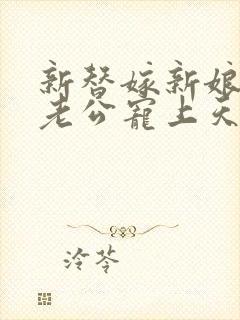 新替嫁新娘
老公宠上天
泠苓